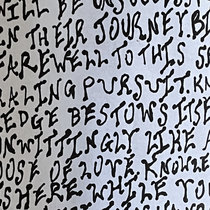 WILL BE
IN THEIR JOURNEY. BI
FAREWELL TO THIS S
KLING PURSUIT. KN
LEDGE BESTOWS ITSE
UNWITTINGLY LIKE A
OF LOVE. KNOWLE
IS HERE WHILE YOU